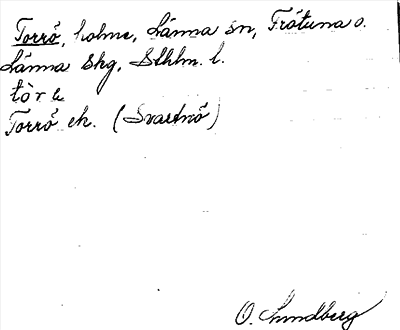 Torrö, holme, Länna sn, Frötuna o.
Länna Skg, Sthlm. l.
tòrɛ
Torrö ek. (Svartnö)
O. Lundberg